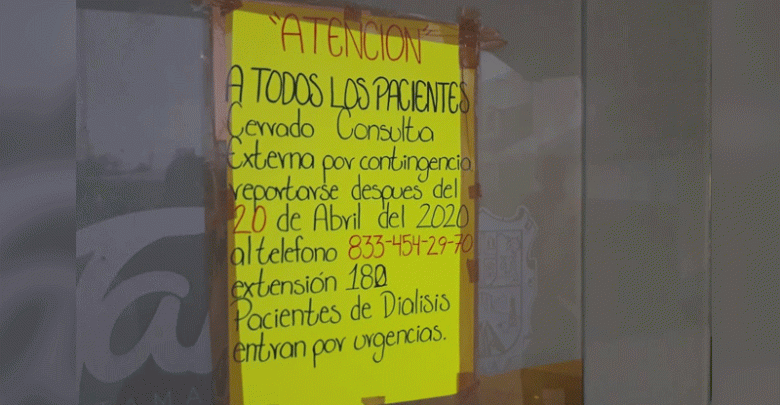 "ATENCION"
A TODOS LOS PACIENTES
Cerrado Consulta
Externa por contingencia
reportarse despues del
20 de Abril del 2020
al telefono 833-454-29-70
extensión 180
Pacientes de Dialisis
entran por urgencias.
Tam
TAMA